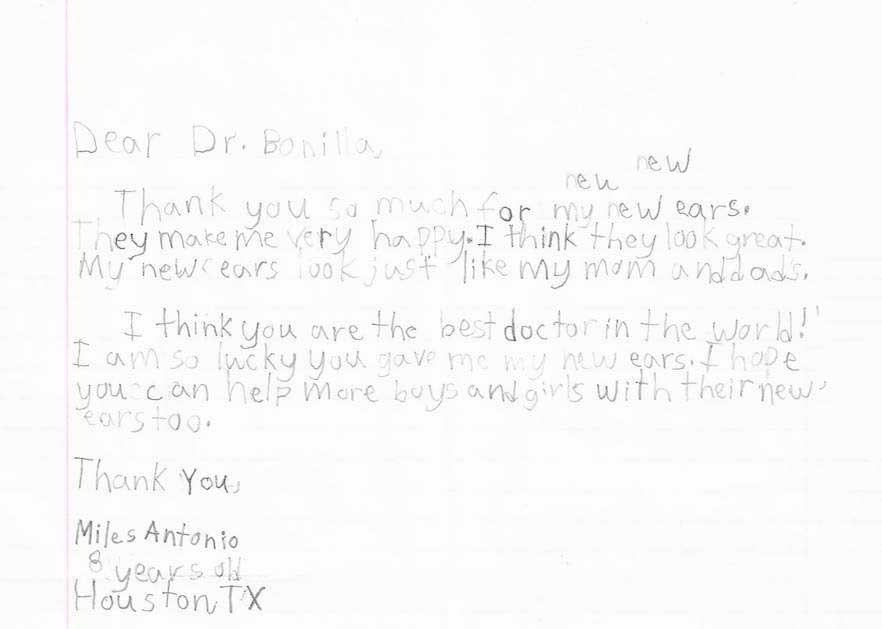 Dear Dr. Bonilla,
new new
Thank you so much for my new ears.
They make me very happy. I think they look great.
My new ears look just like my mom and dads.
I think you are the best doctor in the world!
I am so lucky you gave me my new ears. I hope
you can help more boys and girls with their new
ears too.
Thank You,
Miles Antonio
8 years old
Houston TX